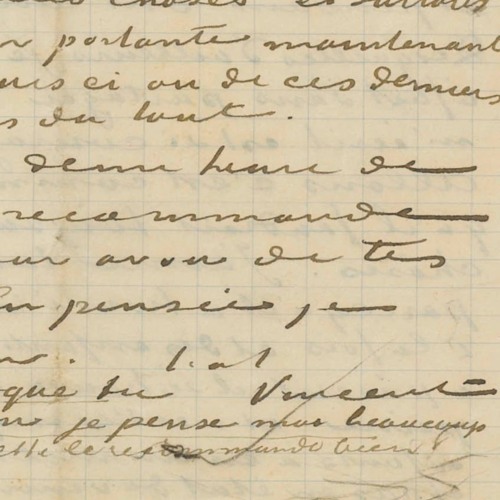 choses et surtout
portante maintenant
ci ou de ces derniers
du tout.
demi heure de
recommande
avoir de tes
en pensée je
t. à t.
que tu Vincent
je pense aussi beaucoup
recommande bien